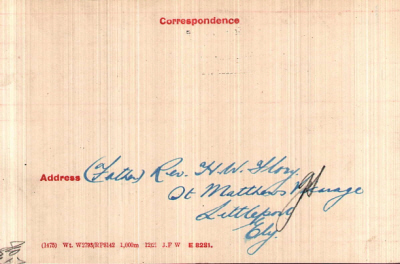 Correspondence
Address (Father) Rev. H. W. Flory.
St Matthews Vicarage
Littleport
Ely.
(1475) Wt. W2795/RP9142 1,000m 12/21 J.P W E 8281.